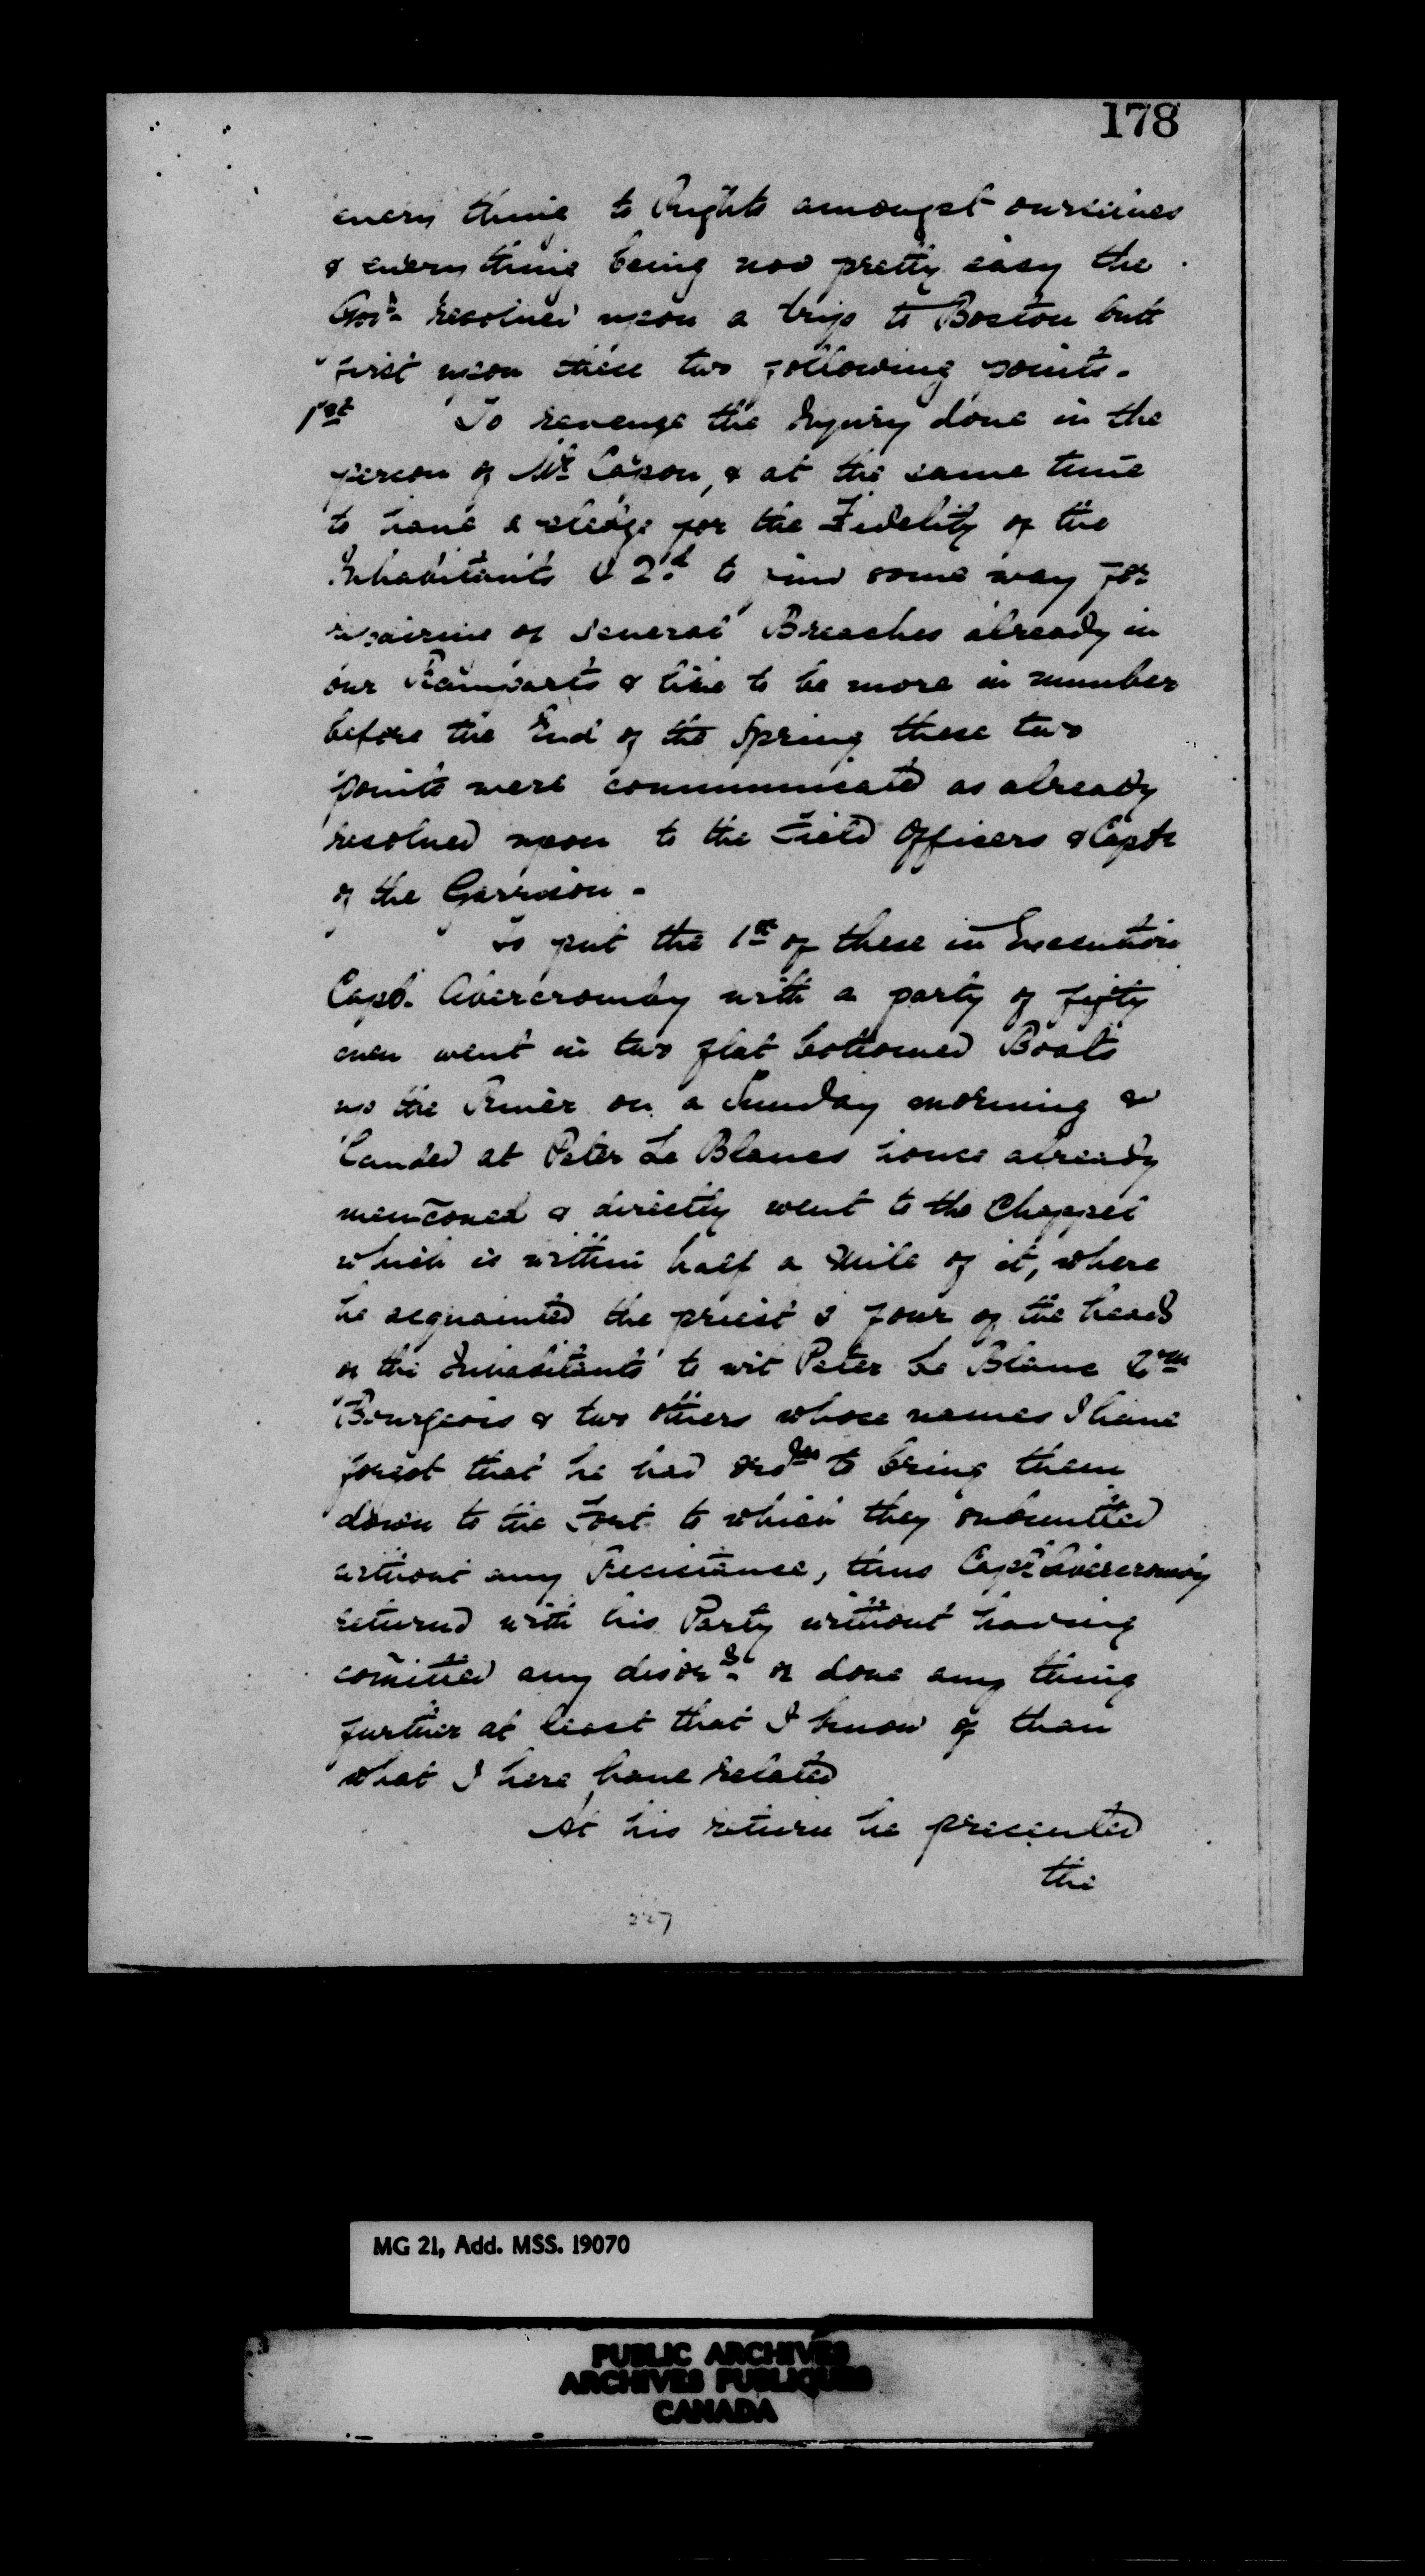 178
every thing to Rights amongst ourselves
& every thing being now pretty easy the
Govr. resolved upon a trip to Boston butt
first upon these two following points.
1st To revenge the Injury done in the
person of Mr. Capon, & at the same time
to have a pledge for the Fidelity of the
Inhabitants & 2d. to find some way for
repairing of several Breaches already in
our Ramparts & like to be more in number
before the End of the Spring these two
points were communicated as already
resolved upon to the Field Officers & Capts
of the Garrison.
To put the 1st of these in Execution
Capt. Abercromby with a party of fifty
men went in two flat bottomed Boats
up the River on a Sunday morning &
landed at Peter Le Blancs house already
mencõned & directly went to the Chappel
which is within half a Mile of it, where
he acquainted the priest & four of the heads
of the Inhabitants to wit Peter Le Blanc
Bourgeois & two others whose names I have
forgot that he had ordrs to bring them
down to the Fort to which they submitted
without any Resistance, thus Capt. Abercromby
returned with his Party without having
comitted any disordr. or done any thing
further at least that I know of than
what I here have related
At his return he presented
the
227
MG 21, Add. MSS. 19070
PUBLIC ARCHIVES
ARCHIVES PUBLIQUES
CANADA